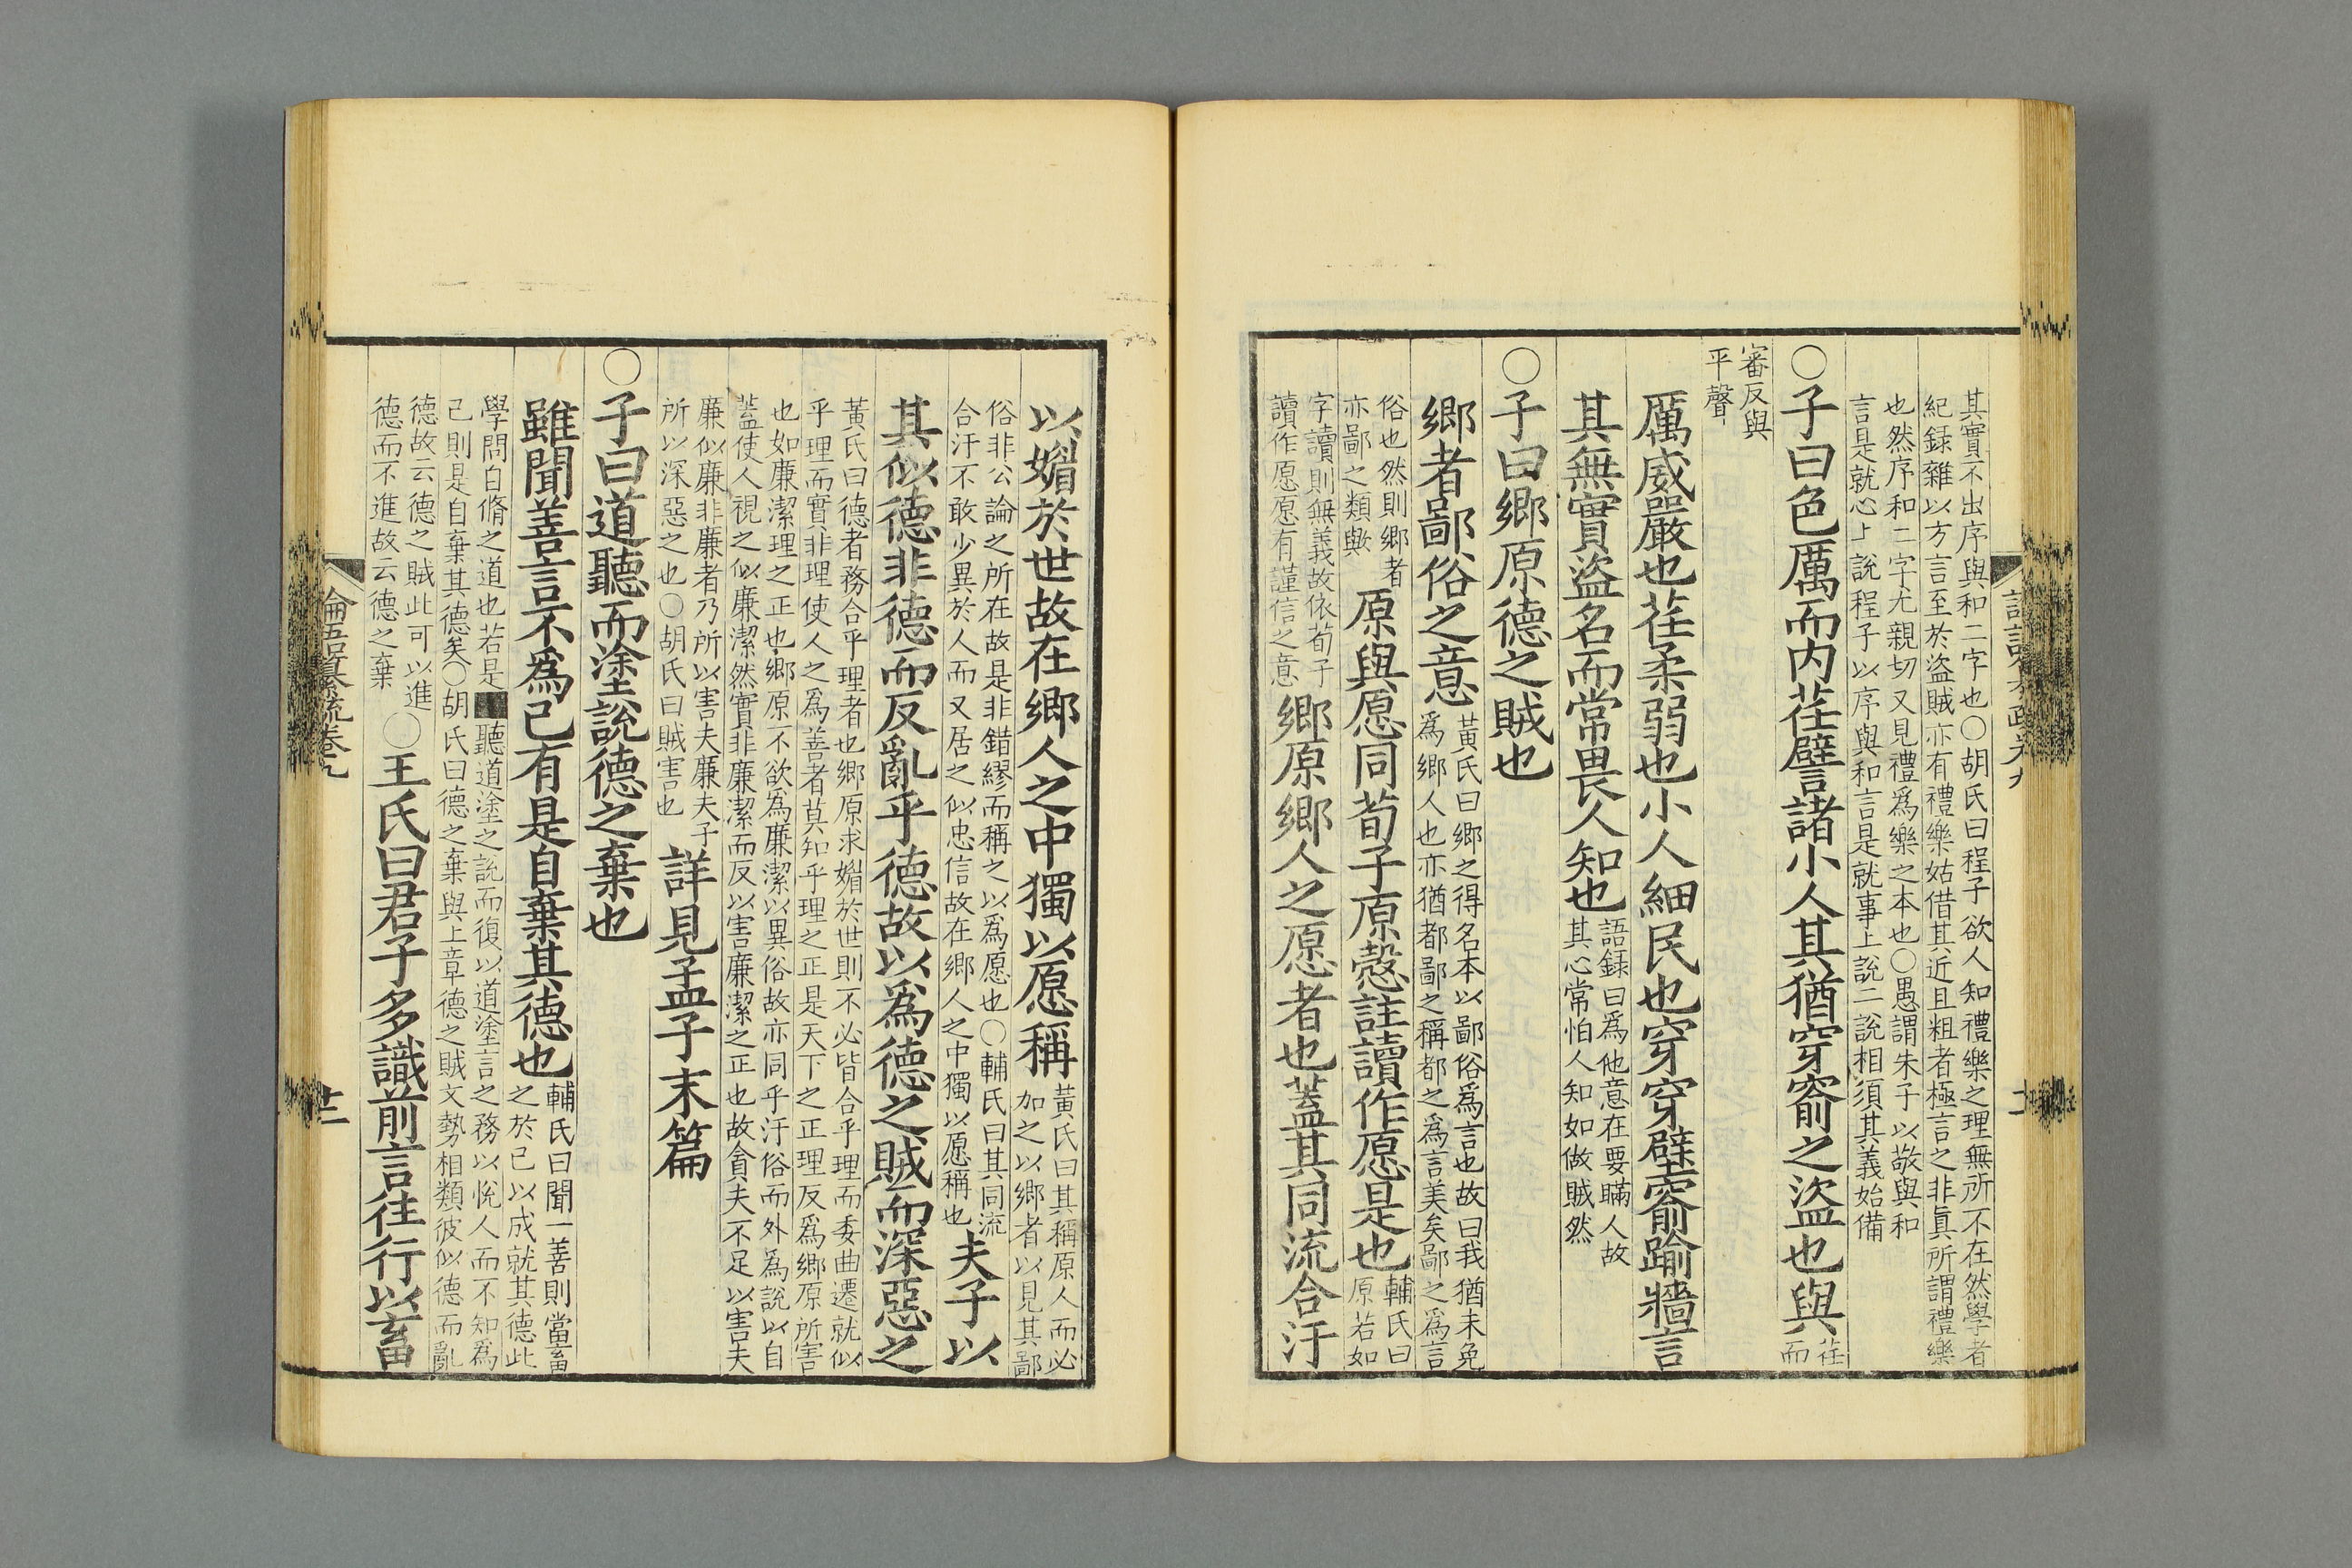 其實不出序與和二字也〇胡氏曰程子欲人知禮樂之理無所不在然學者
紀録雜以方言至於盗賊亦有禮樂姑借其近且粗者極言之非眞所謂禮樂
也然序和二字尤親切又見禮爲樂之本也〇愚謂朱子以敬與和
言是就心上說程子以序與和言是就事上說二說相須其義始備
〇子曰色厲而內荏譬諸小人其猶穿窬之盗也與
荏
而
審反與
平聲
厲威嚴也荏柔弱也小人細民也穿穿壁窬踰牆言
其無實盜名而常畏人知也
語録曰爲他意在要瞞人故
其心常怕人知如做賊然
〇子曰鄉原德之賊也
鄉者鄙俗之意
黃氏曰鄉之得名本以鄙俗爲言也故曰我猶未免
爲鄉人也亦猶都鄙之稱都之爲言美矣鄙之爲言
俗也然則鄉者
亦鄙之類與
原與愿同荀子原愨註讀作愿是也
輔氏曰
原若如
字讀則無義故依荀子
讀作愿愿有謹信之意
鄉原鄉人之愿者也蓋其同流合汙
以媚於世故在鄉人之中獨以愿稱
黃氏曰其稱原人而必
加之以鄉者以見其鄙
俗非公論之所在故是非錯繆而稱之以爲愿也〇輔氏曰其同流
合汙不敢少異於人而又居之似忠信故在鄉人之中獨以愿稱也
夫子以
其似德非德而反亂乎德故以爲德之賊而深惡之
黃氏曰德者務合乎理者也鄉原求媚於世則不必皆合乎理而委曲遷就似
乎理而實非理使人之爲善者莫知乎理之正是天下之正理反爲鄉原所害
也如廉潔理之正也鄉原不欲爲廉潔以異俗故亦同乎汙俗而外爲說以自
蓋使人視之似廉潔然實非廉潔而反以害廉潔之正也故貪夫不足以害夫
廉似廉非廉者乃所以害夫廉夫子
所以深惡之也〇胡氏曰賊害也
詳見孟子末篇
〇子曰道聽而塗說德之棄也
雖聞善言不爲己有是自棄其德也
輔氏曰聞一善則當畜
之於己以成就其德此
學問自脩之道也若是聽道塗之說而復以道塗言之務以悅人而不知爲
己則是自棄其德矣〇胡氏曰德之棄與上章德之賊文勢相類彼似德而亂
德故云德之賊此可以進
德而不進故云德之棄
〇王氏曰君子多識前言往行以畜
論語纂疏卷九